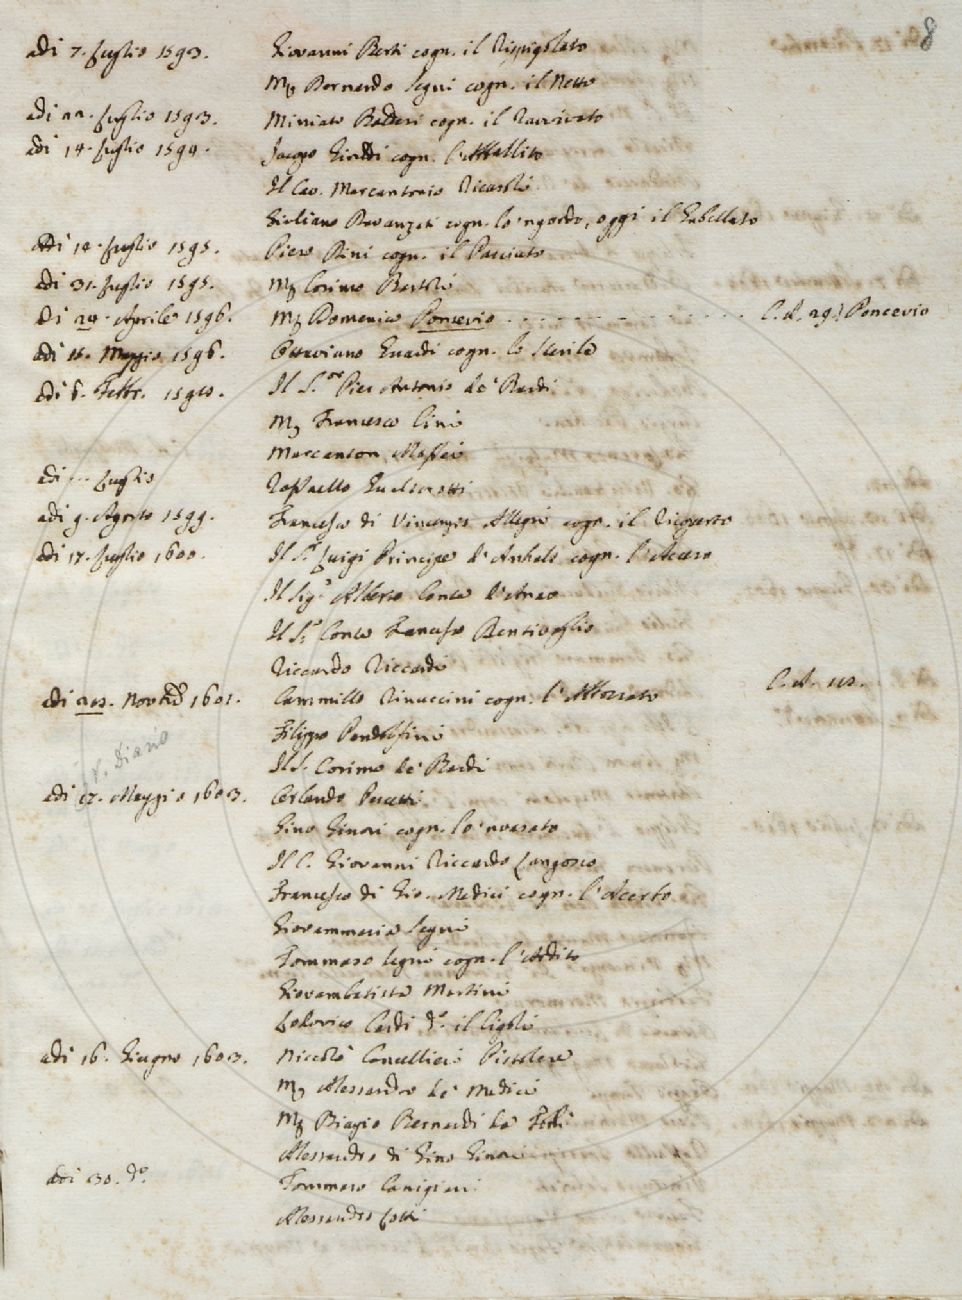 8
adi 7. Luglio 1593. Giovanni Berti cogn. il Rispigolato
Mʳ Bernardo Segni cogn. il Netto
adi 22. Luglio 1593. Miniato cogn. il Ravvivato
adi 14. Luglio 1594. Jacopo Giraldi cogn. l'Abballito
Il Cav. Marcantonio Ricasoli
Giuliano Davanzati cogn. lo'ngordo, oggi il Gabellato
adi 14. Luglio 1595. Piero Dini cogn. il Pasciuto
adi 31. Luglio 1595. Mʳ Cosimo Bartoli
di 24. Aprile 1596. Mʳ Domenico Poncevio . . . . . . . . . . C. A. 29. Poncevio
adi 15. Maggio 1596. Ottaviano cogn. lo Sterile
adi 6. Febbr. Il S.ᵒʳ Pier Antonio de' Bardi
Mʳ Francesco Cini
Marcanton Maffei
adi ... Luglio Raffaello Gualterotti
adi 9. Agosto 1599. Francesco di Vincenzio Allegri cogn. il Ricoverto
adi 17. Luglio 1600. Il S.ʳ Luigi Principe d'Anhalt cogn. l'Acceso
Il Sig.ʳ Alberto Conte
Il S.ʳ Conte Francesco Bentivoglio
Riccardo Riccardi
adi Novebᵉ 1601. Cammillo Rinuccini cogn. C. A. 112.
Filippo Pandolfini
Il S. Cosimo de' Bardi
v. Diario
adi 17. Maggio 1603. Orlando Pescetti
Gino Ginori cogn. lo'nvasato
Il C. Giovanni Riccardo Langosco
Francesco di Gio. Medici cogn. l'Acerbo
Giovammaria Segni
Tommaso Segni cogn. l'Ardito
Giovambatista Martini
Lodovico Cardi d.ᵒ il Cigoli
adi 16. Giugno 1603. Niccolò Cancellieri Pistolese
Mʳ Alessandro de' Medici
Mʳ Biagio Bernardi
Alessandro di Gino Ginori
adi 30. d.ᵒ Tommaso Canigiani
Alessandro